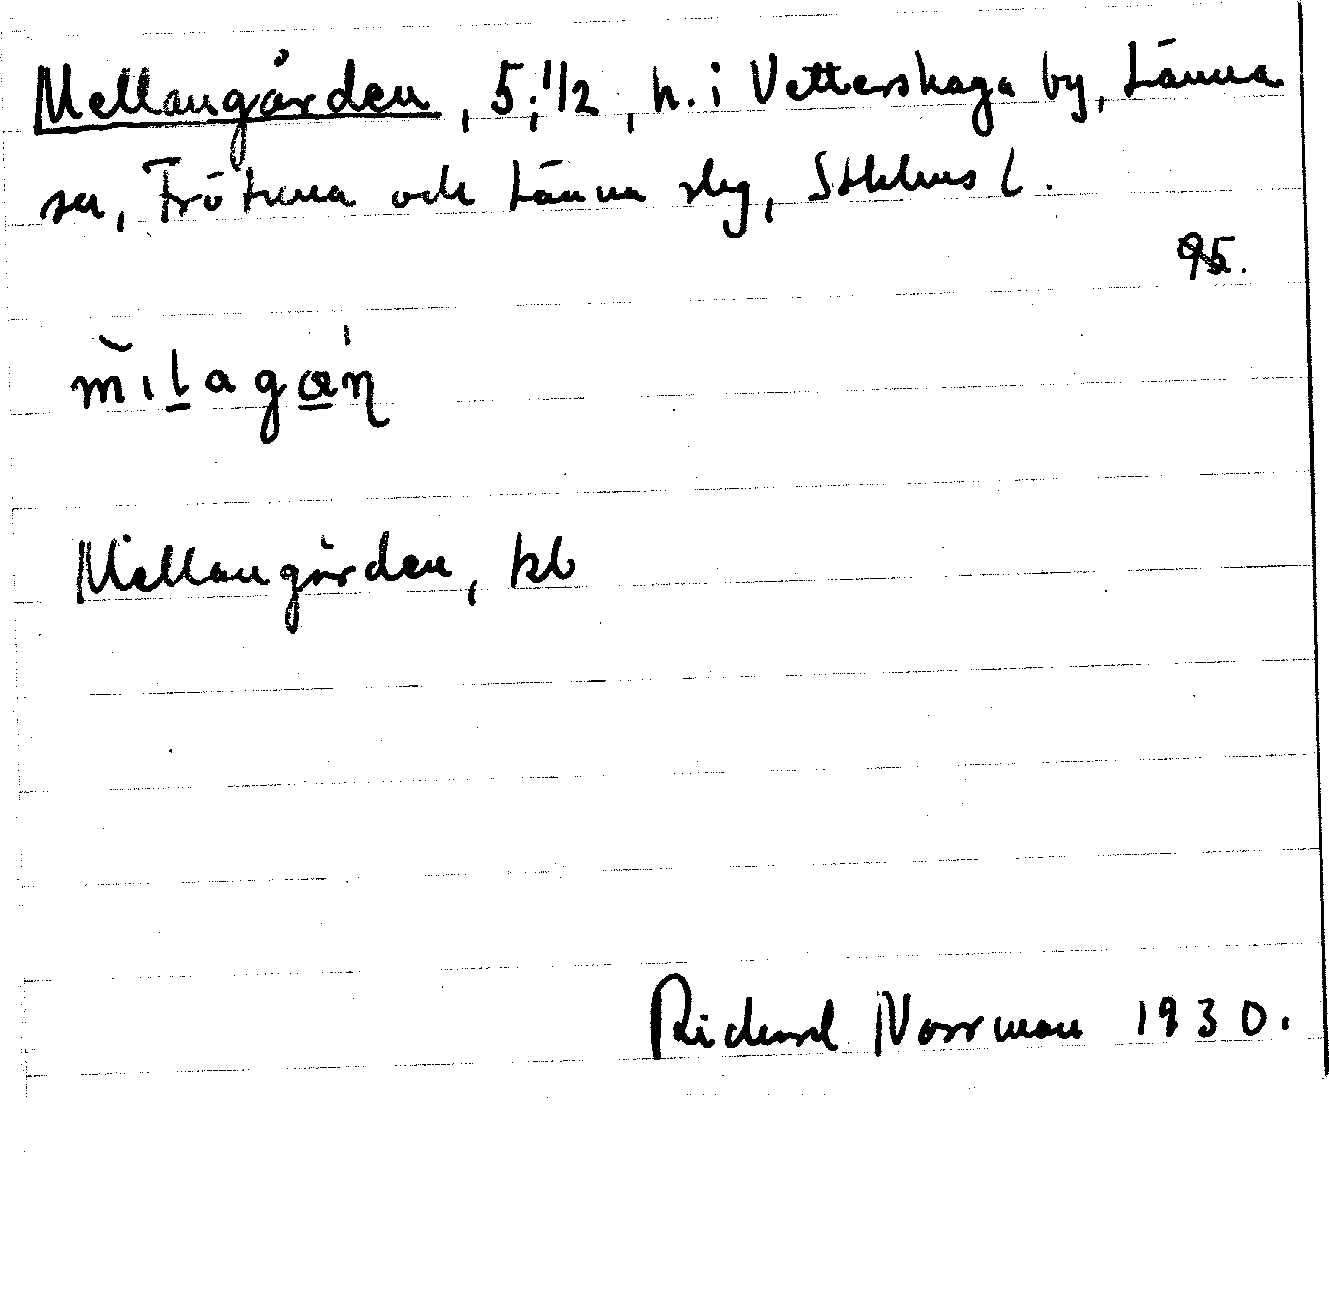 Mellangården, 5; 1/2, h. i Vettershaga by, Länna
sn, Frötuna och Länna slg, Sthlms l.
95.
Mellangården, kb
Rickard Norrman 1930.